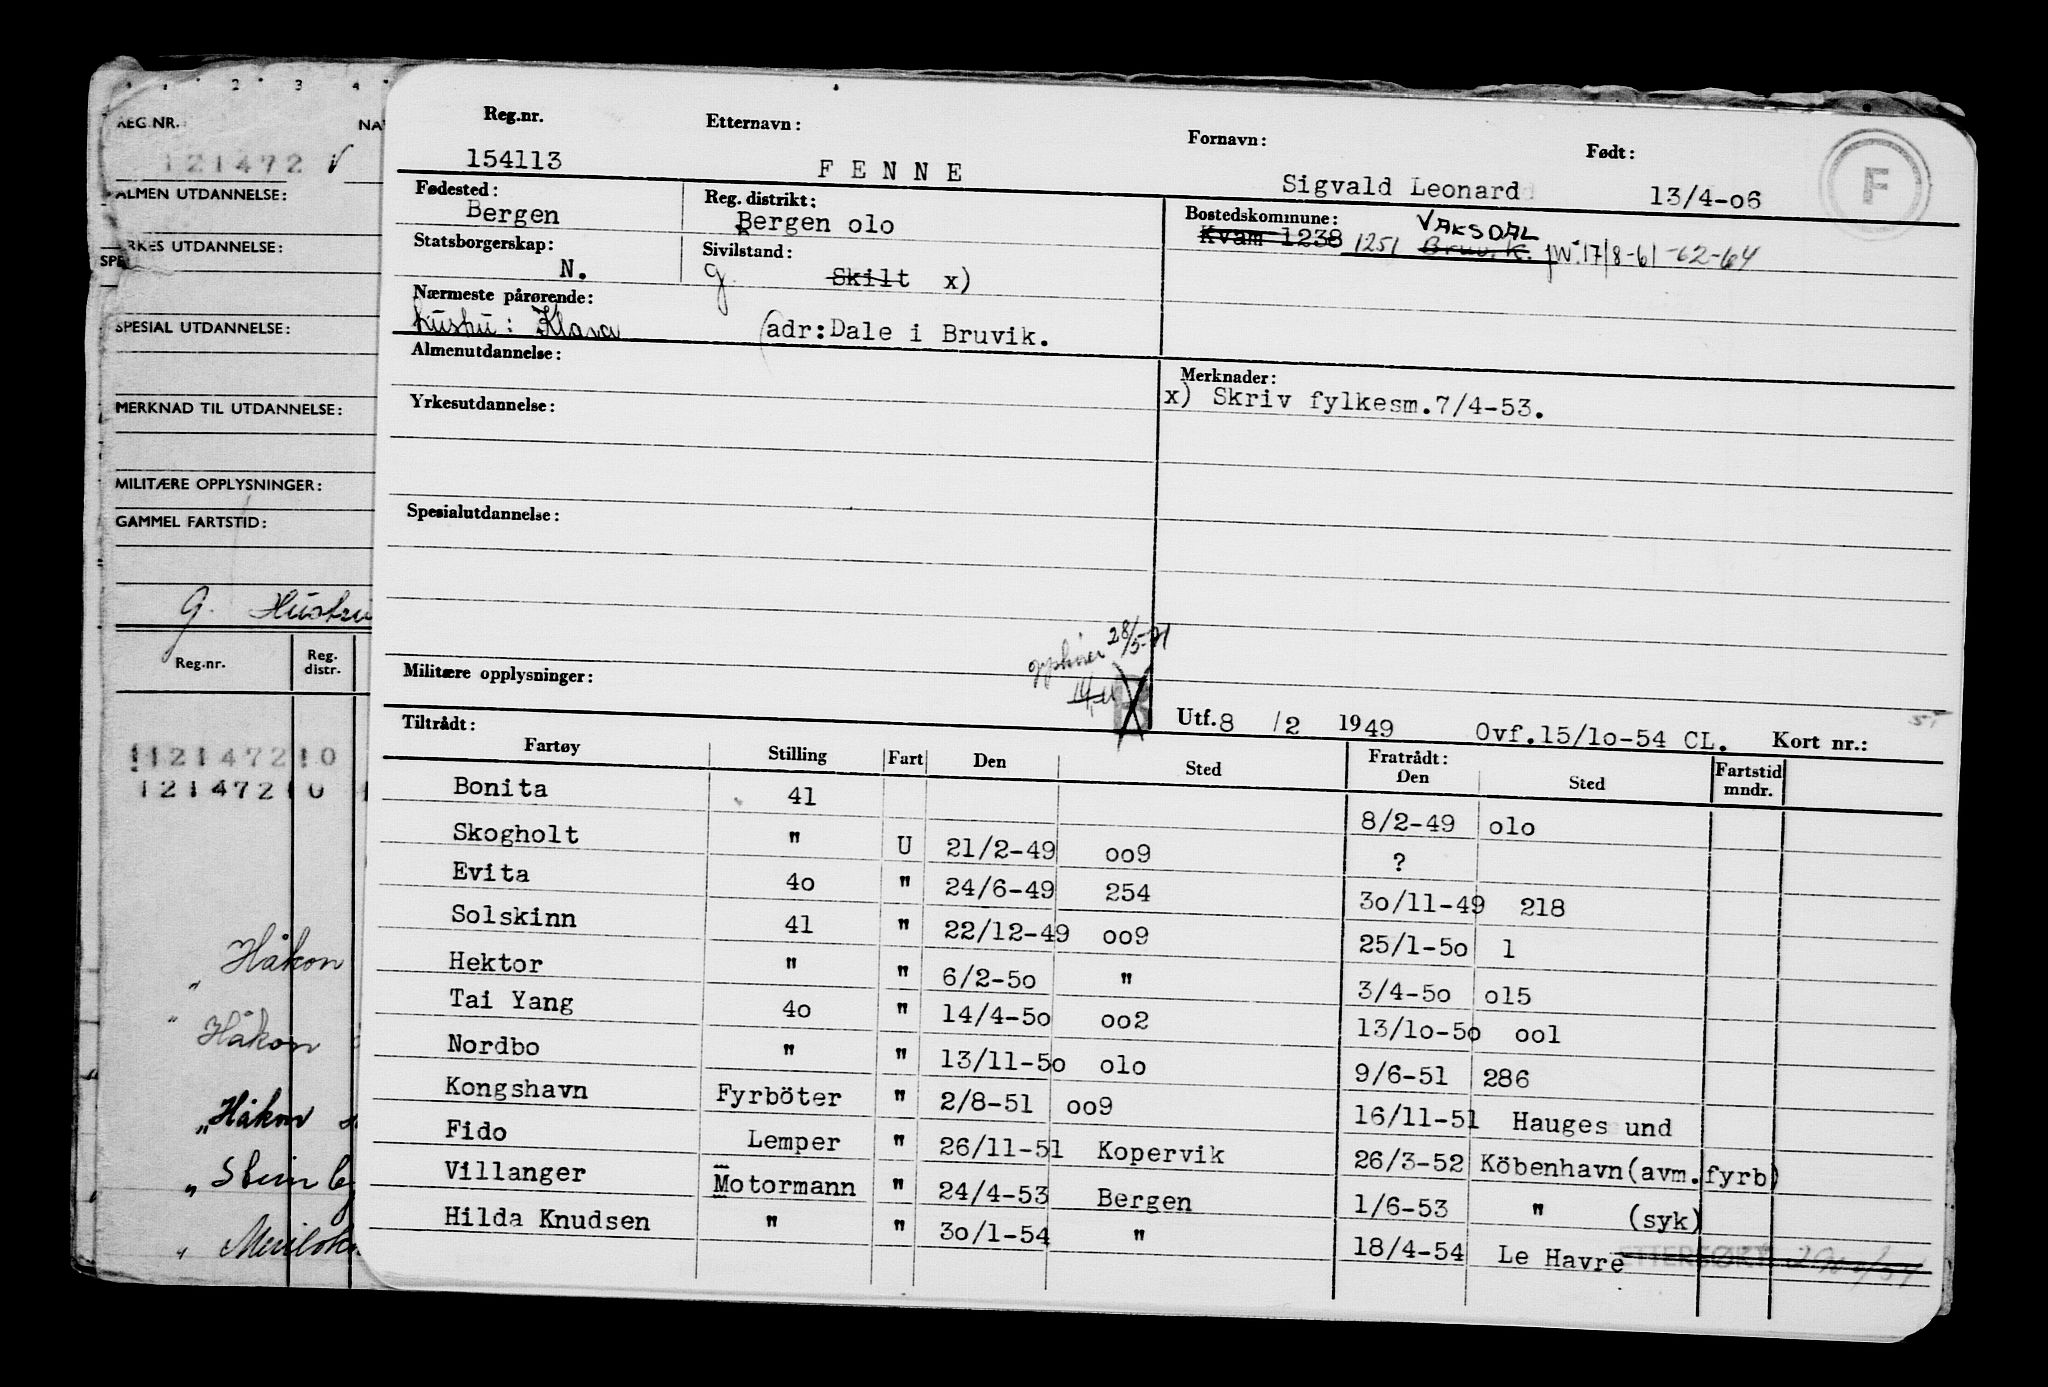 2 3 4
REG.NR.
121472 V
ALMEN UTDANNELSE:
YRKES UTDANNELSE:
SPE
SPESIAL UTDANNELSE:
MERKNAD TIL UTDANNELSE:
MILITÆRE OPPLYSNINGER:
GAMMEL FARTSTID:
g. Hustru
Reg.nr. Reg. distr.
12147210
12147210
" Håkon
" Håkon
" Håkon
Reg.nr. Etternavn: Fornavn: Født:
154113 FENNE Sigvald Leonard 13/4-o6
F
Fødested: Reg. distrikt: Bostedskommune:
Bergen Bergen olo Kvam 1238 1251 Bruvik. VAKSDAL 17/8-61-62-64
Statsborgerskap: Sivilstand:
N. g Skilt x)
Nærmeste pårørende:
hustru: Klara (adr:Dale i Bruvik.
Almenutdannelse: Merknader:
x) Skriv fylkesm.7/4-53.
Yrkesutdannelse:
Spesialutdannelse:
28/5-71
Militære opplysninger:
Utf.8 /2 1949 Ovf.15/1o-54 CL. Kort nr.:
Tiltrådt: Fratrådt:
Fartøy Stilling Fart Den Sted Den Sted Fartstid mndr.
Bonita 41 8/2-49 olo
Skogholt " U 21/2-49 oo9 ?
Evita 4o " 24/6-49 254 3o/11-49 218
Solskinn 41 " 22/12-49 oo9 25/1-5o 1
Hektor " " 6/2-5o " 3/4-5o o15
Tai Yang 4o " 14/4-5o oo2 13/1o-5o ool
Nordbo " " 13/11-5o olo 9/6-51 286
Kongshavn Fyrböter " 2/8-51 oo9 16/11-51 Hauges und
Fido Lemper " 26/11-51 Kopervik 26/3-52 Köbenhavn(avm.fyrb)
Villanger Motormann " 24/4-53 Bergen 1/6-53 " (syk)
Hilda Knudsen " " 3o/1-54 " 18/4-54 Le Havre ETTERSØKT